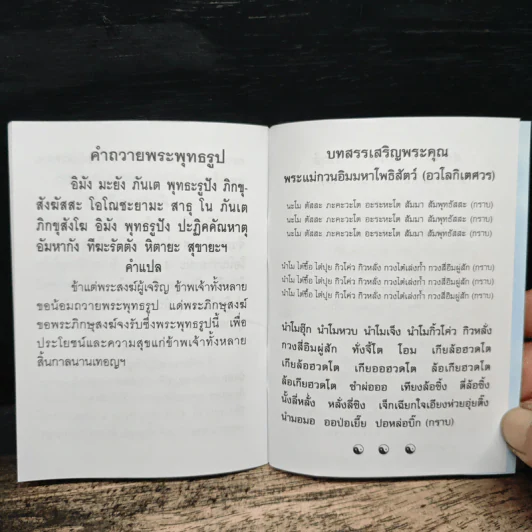 คำถวายพระพุทธรูป
อิมัง มะยัง ภันเต พุทธะรูปัง ภิกขุ
สังฆัสสะ โอโณชะยามะ สาธุ โน ภันเต
ภิกขุสังโฆ อิมัง พุทธรูปัง ปะฏิคคัณหาตุ
อัมหากัง ทีฆะรัตตัง หิตายะ สุขายะฯ
คำแปล
ข้าแต่พระสงฆ์ผู้เจริญ ข้าพเจ้าทั้งหลาย
ขอน้อมถวายพระพุทธรูป แด่พระภิกษุสงฆ์
ขอพระภิกษุสงฆ์จงรับซึ่งพระพุทธรูปนี้ เพื่อ
ประโยชน์และความสุขแก่ข้าพเจ้าทั้งหลาย
สิ้นกาลนานเทอญฯ
บทสรรเสริญพระคุณ
พระแม่กวนอิมมหาโพธิสัตว์ (อวโลกิเตศวร)
นะโม ตัสสะ ภะคะวะโต อะระหะโต สัมมา สัมพุทธัสสะ (กราบ)
นะโม ตัสสะ ภะคะวะโต อะระหะโต สัมมา สัมพุทธัสสะ (กราบ)
นะโม ตัสสะ ภะคะวะโต อะระหะโต สัมมา สัมพุทธัสสะ (กราบ)
นำโม ไต่ชื้อ ไต่ปุย กิวโค่ว กิวหลั่ง กวงไต๋เล่งก้ำ กวงสี่อิมผู่สัก (กราบ)
นำโม ไต่ชื้อ ไต่ปุย กิวโค่ว กิวหลั่ง กวงไต๋เล่งก้ำ กวงสี่อิมผู่สัก (กราบ)
นำโม ไต่ชื้อ ไต่ปุย กิวโค่ว กิวหลั่ง กวงไต๋เล่งก้ำ กวงสี่อิมผู่สัก (กราบ)
นำโมฮุ๊ก นำโมหวบ นำโมเจ็ง นำโมกิ้วโค่ว กิวหลั่ง
กวงสี่อิมผู่สัก ทั่งจี้โต โอม เกียล้อฮวดโต
เกียล้อฮวดโต เกียออฮวดโต ล้อเกียฮวดโต
ล้อเกียฮวดโต ซำผ่อออ เทียงล้อซิ้ง ตี่ล้อซิ้ง
นั้งลี่หลั่ง หลั่งลี่ซิง เจ็กเฉียกใจเอียงห่วยอุ่ยติ๊ง
นำมอมอ ออป่อเยี๊ย ปอหล่อบิ๊ก (กราบ)